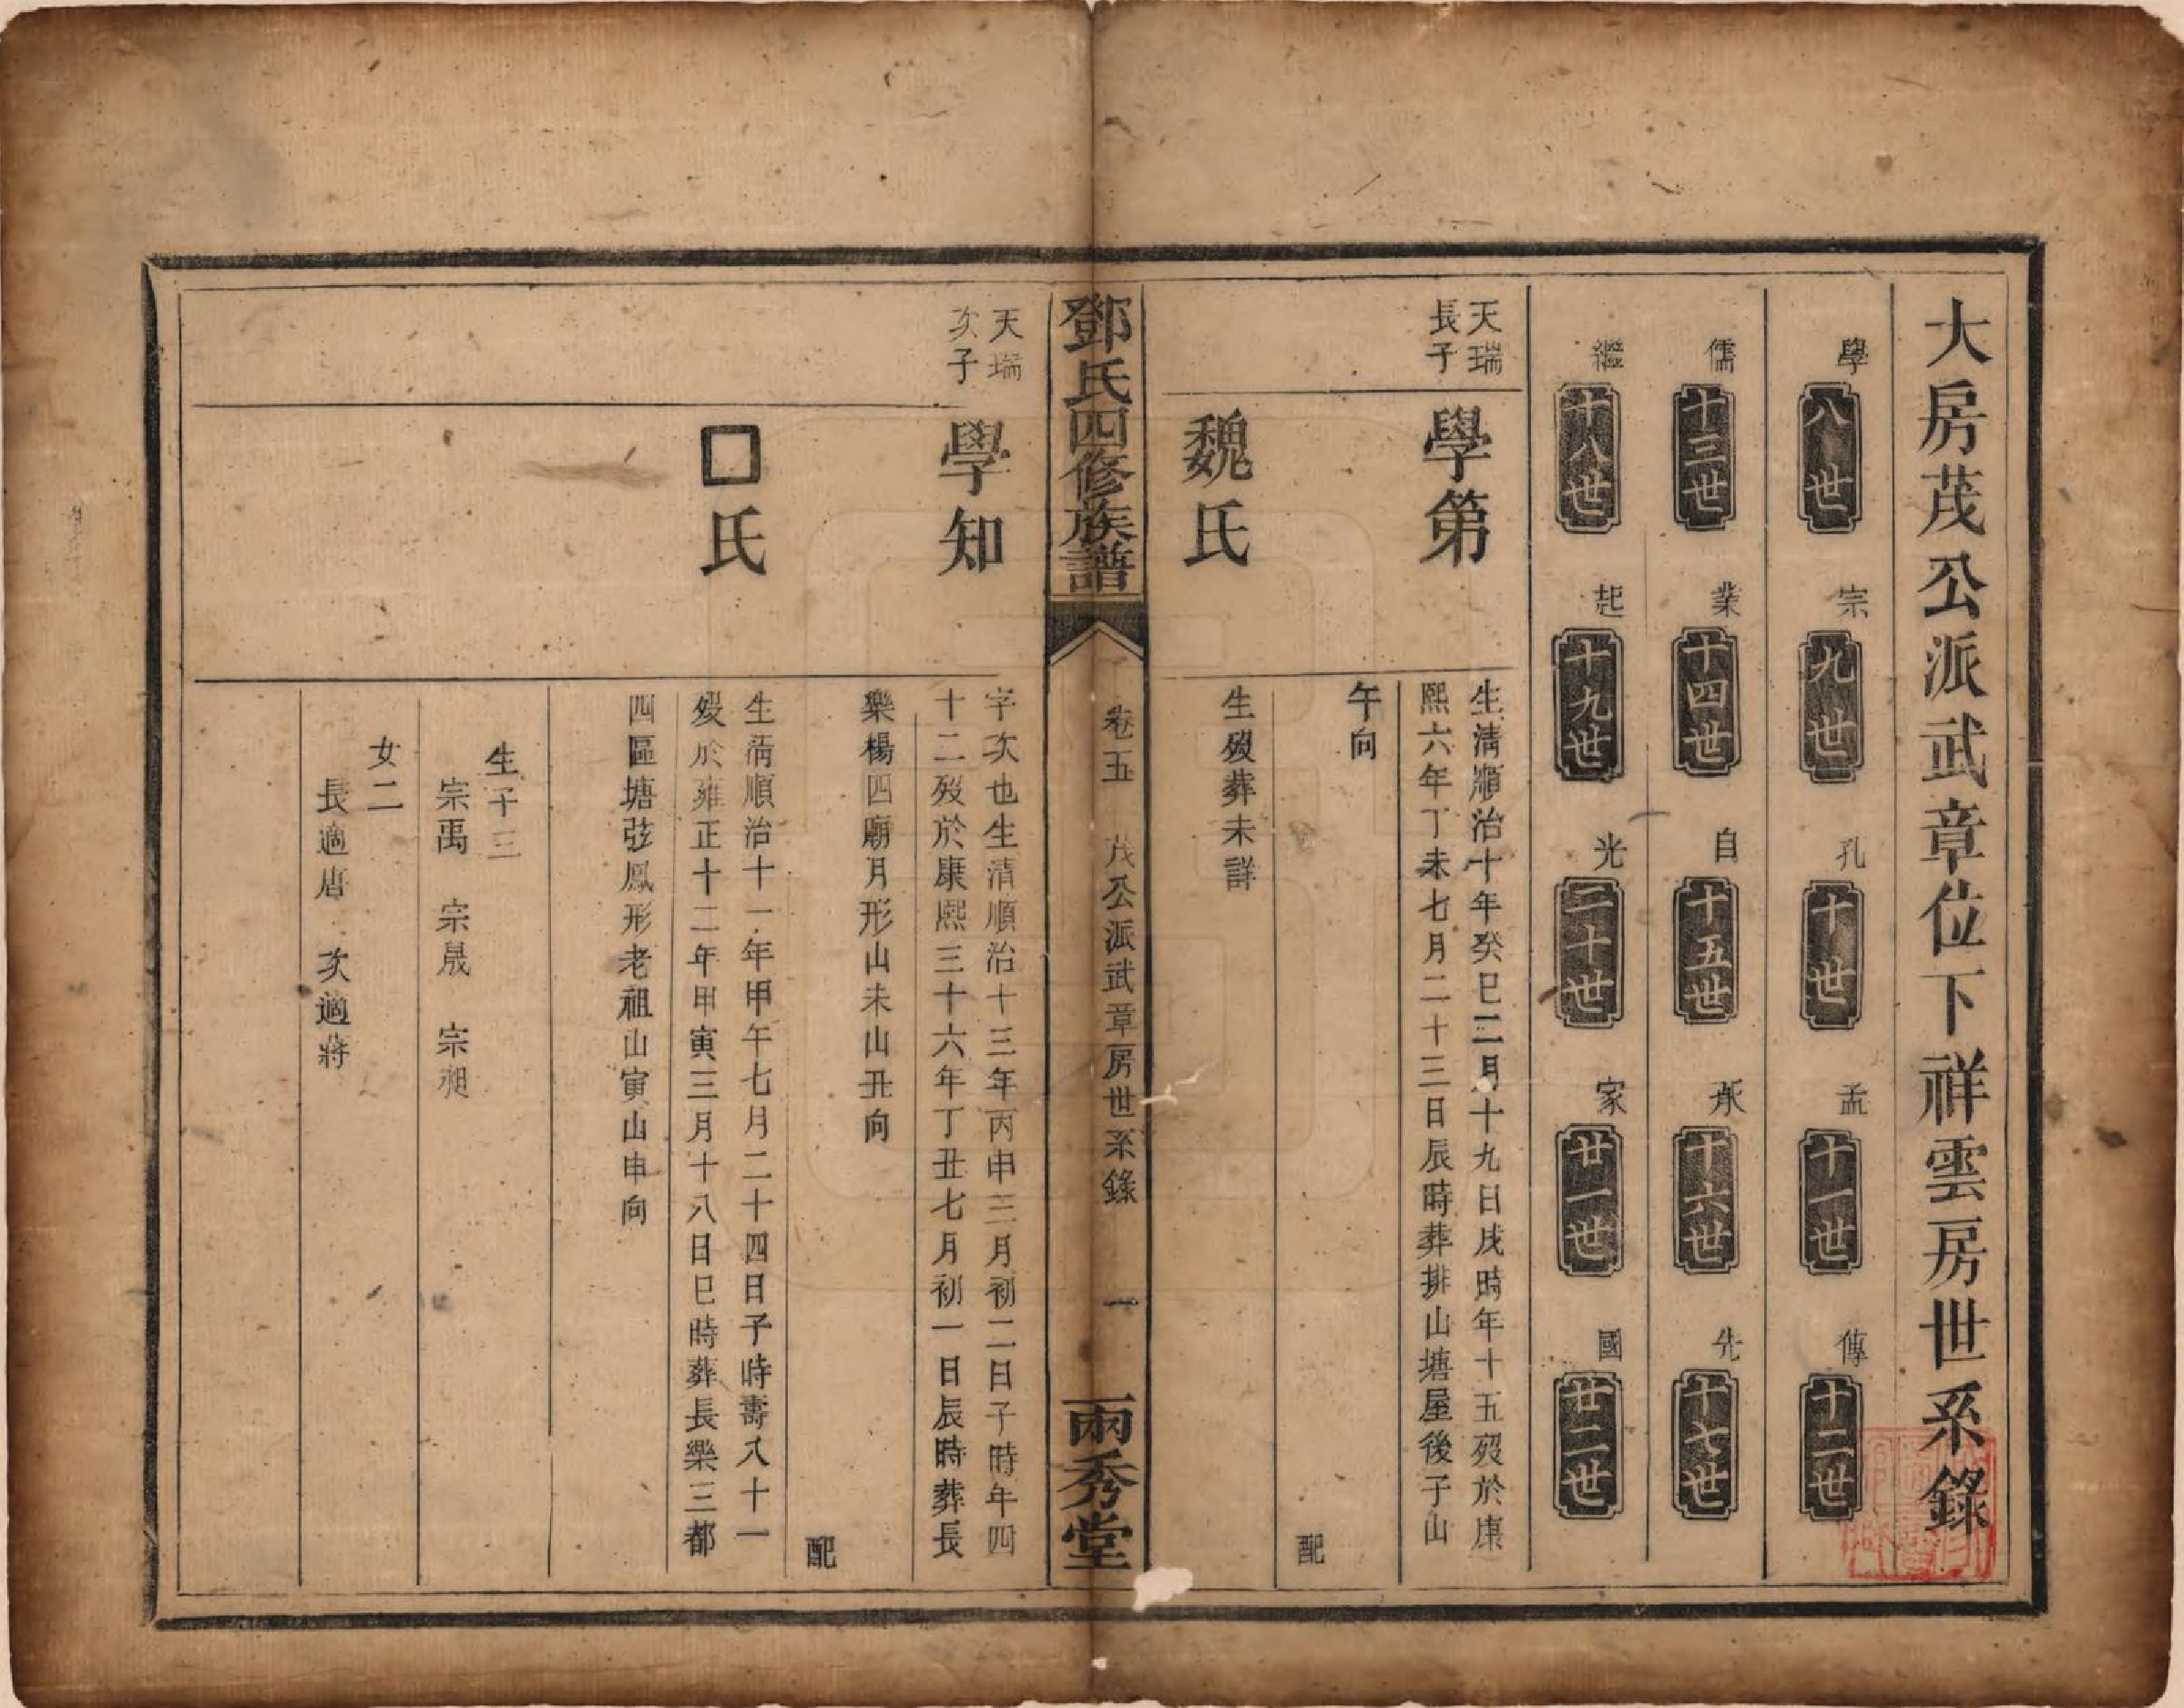 大房茂公派武章位下祥雲房世系錄
學 八世 宗 九世 孔 十世 孟 十一世 傳 十二世
儒 十三世 業 十四世 自 十五世 承 十六世 先 十七世
繼 十八世 起 十九世 光 二十世 家 廿一世 國 廿二世
天瑞
長子
學第
生清順治十年癸巳二月十九日戌時年十五歿於康
熙六年丁未七月二十三日辰時葬排山塘屋後子山
午向
配
魏氏
生歿葬未詳
鄧氏四修族譜 卷五 茂公派武章房世系錄 一 兩秀堂
天瑞
次子
學知
字次也生清順治十三年丙申三月初二日子時年四
十二歿於康熙三十六年丁丑七月初一日辰時葬長
樂楊四廟月形山未山丑向
配
□氏
生清順治十一年甲午七月二十四日子時壽八十一
歿於雍正十二年甲寅三月十八日巳時葬長樂三都
四區塘弦鳳形老祖山寅山申向
生子三
宗禹 宗晟 宗昶
女二
長適唐 次適蔣